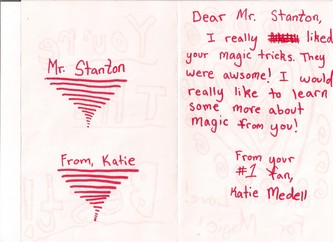 Mr. Stanton
From, Katie
Dear Mr. Stanton,
I really liked
your magic tricks. They
were awsome! I would
really like to learn
some more about
magic from you!
From your
#1 fan,
Katie Medell